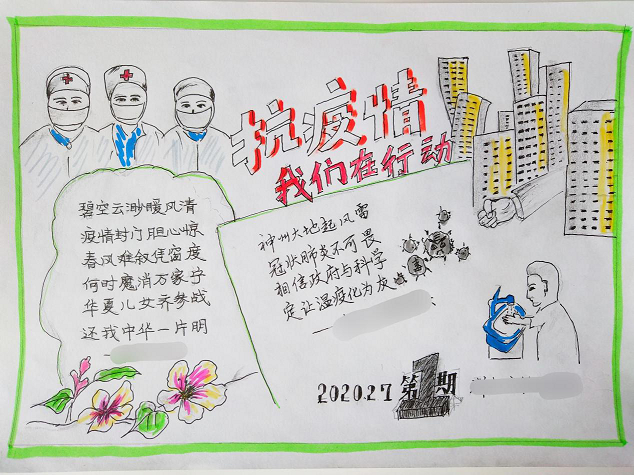 抗疫情
我们在行动
碧空云渺暖风清
疫情封门胆心惊
春风难叙凭窗度
何时魔消万家宁
华夏儿女齐参战
还我中华一片明
神州大地起风雷
冠状肺炎不可畏
相信政府与科学
定让瘟疫化为灰
2020.2.7 第1期